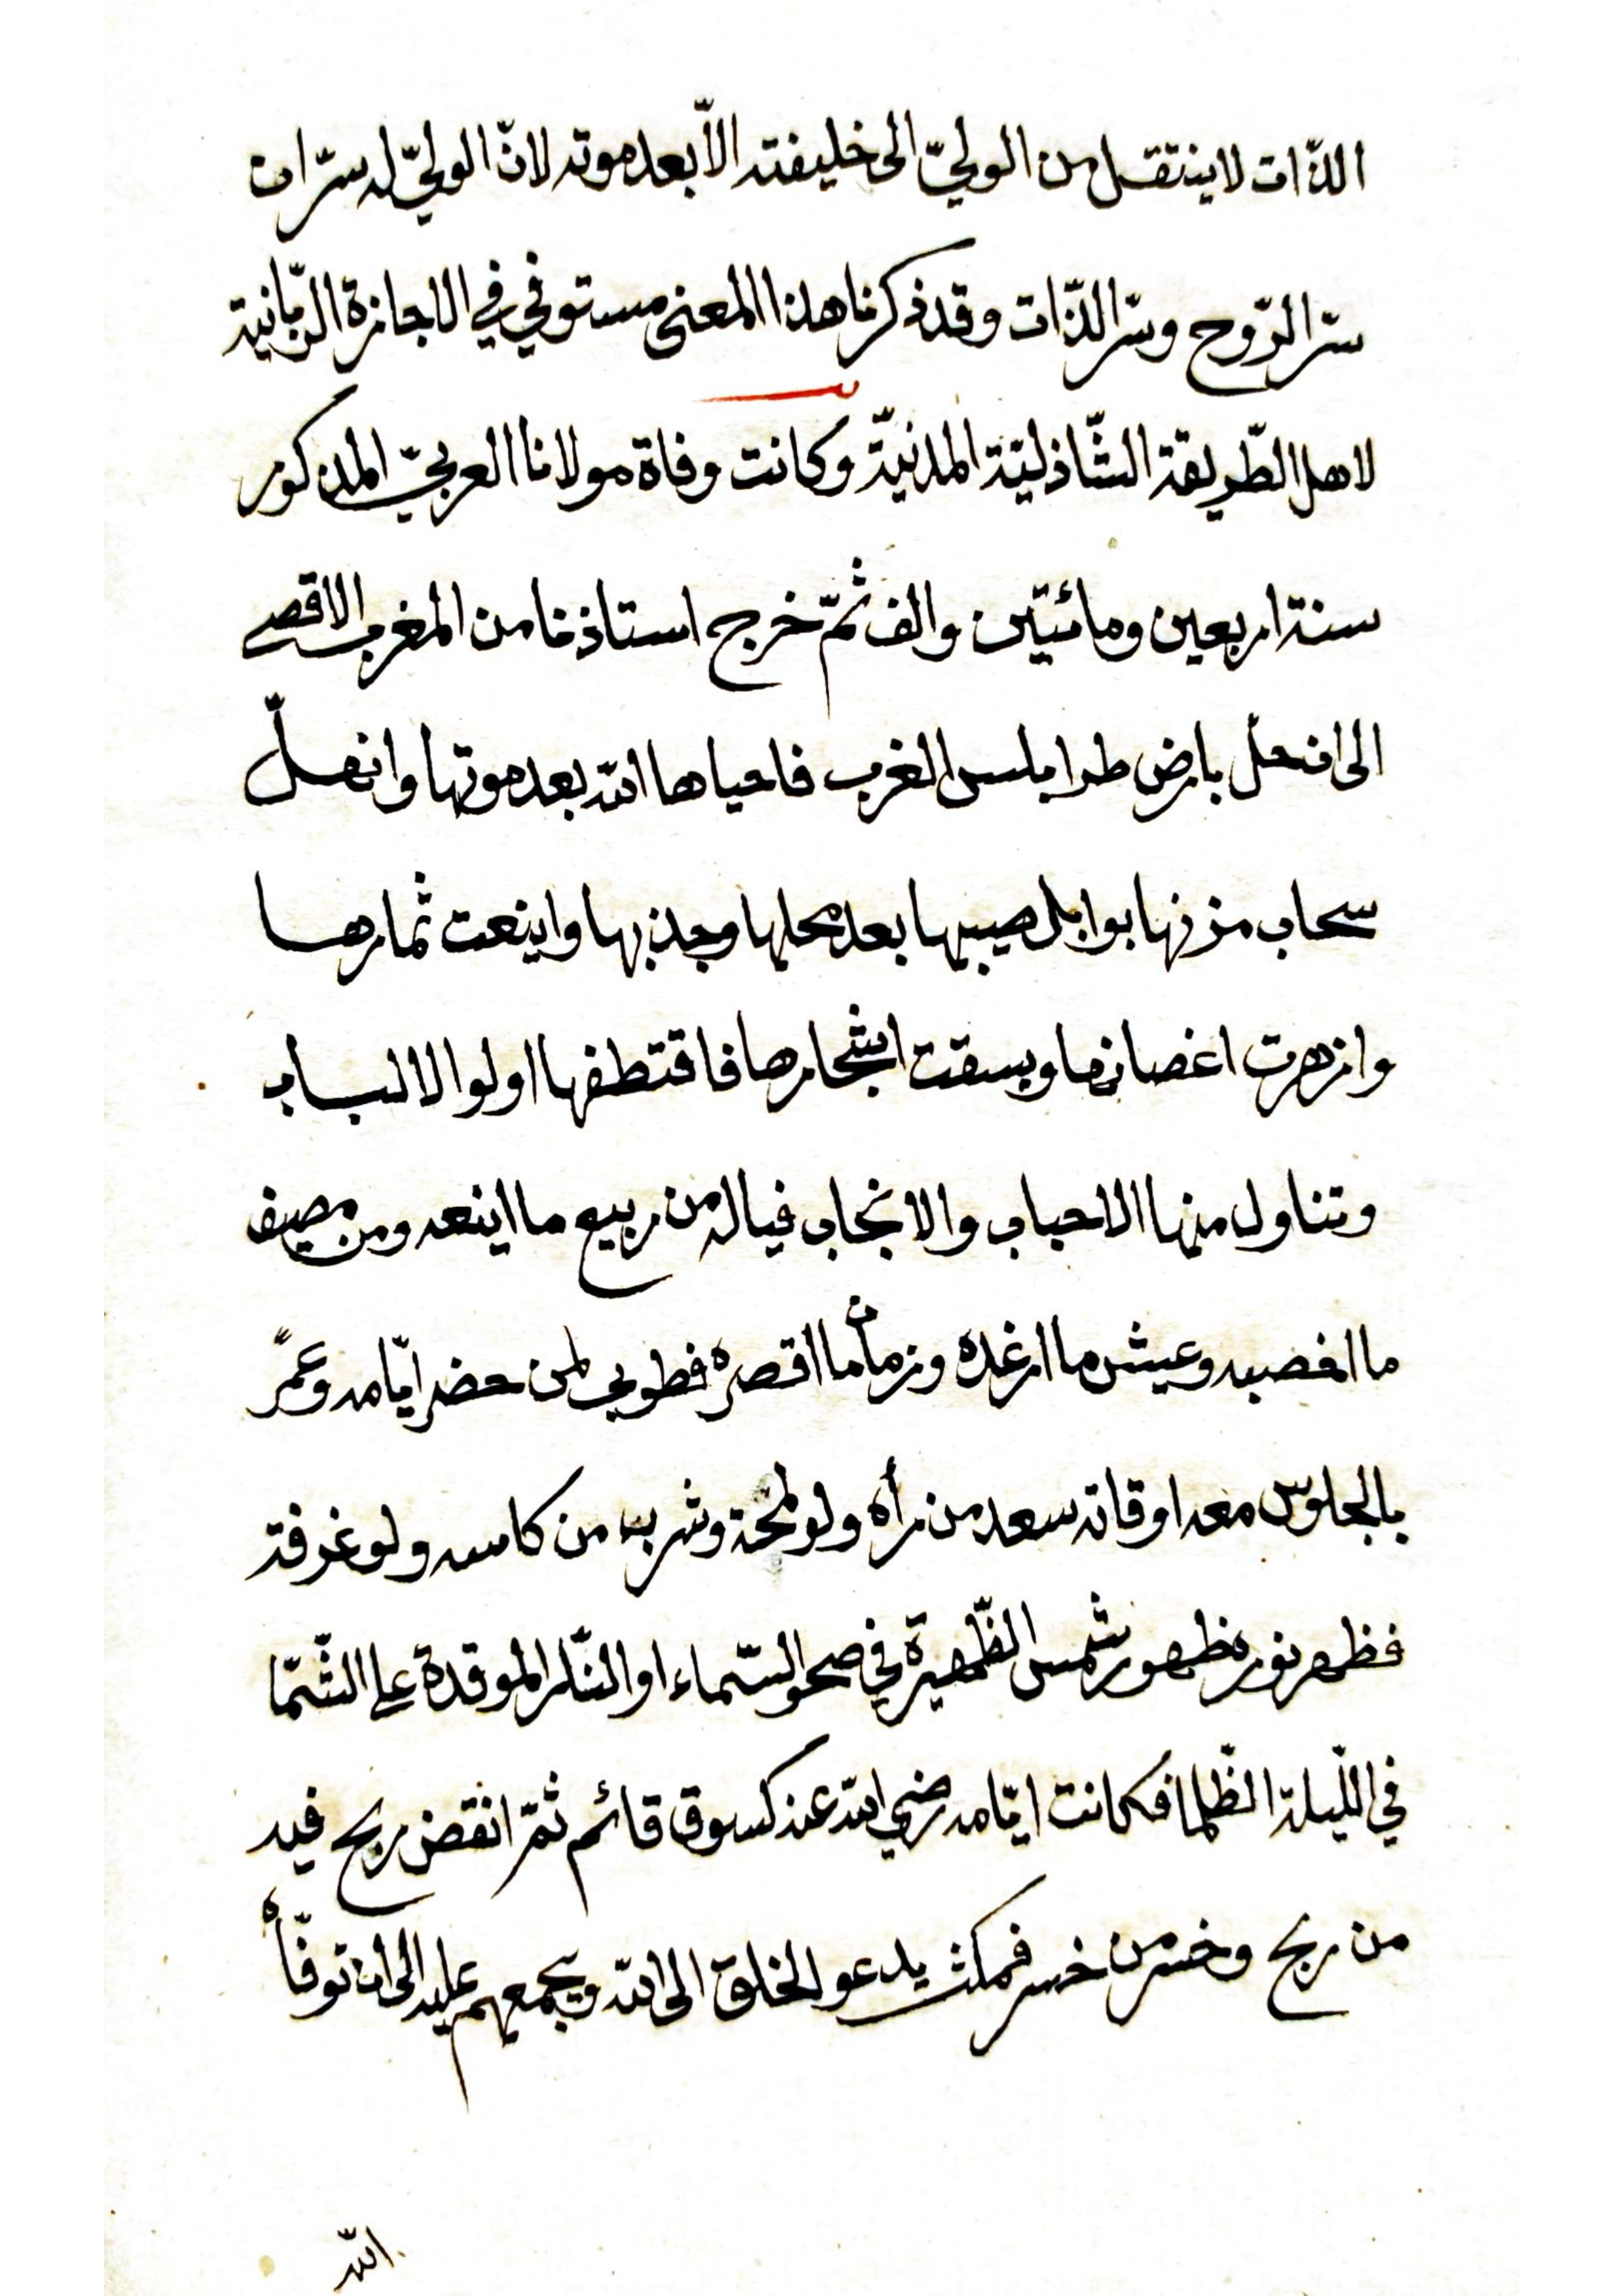 الذّات لا ينتقل من الوليّ الى خليفته الاّ بعد موته لانّ الوليّ له سرّان
سرّ الرّوح وسرّ الذّات وقد ذكرنا هذا المعنى مستوفي في الاجازة الرّبّانية
لاهل الطّريقة الشّاذليّة المدنيّة وكانت وفاة مولانا العربيّ المذكور
سنة اربعين ومائتين والف ثمّ خرج استاذنا من المغرب الاقصى
الى ان حلّ بارض طرابلس الغرب فاحياها الله بعد موتها وانهلّ
سحاب مزنها بوابل صيبها بعد محلها وجذبها واينعت ثمارها
وازهرت اغصانها وبسقت اشجارها فاقتطفها اولوا الالباب
وتناول منها الاحباب والانجاب فياله من ربيع ما اينعه ومن مصيف
ما اخصبه وعيش ما ارغده وزمان ما اقصره فطوبي لمن حضر ايّامه وعمّر
بالجلوس معه اوقاته سعد من رأه ولو لمحة وشرب من كاسه ولو غرفة
فظهر نوره ظهور شمس الظّهيرة في صحو السّماء او النّار الموقدة على الشّمّا
في اللّيلة الظّلما فكانت ايّامه رضي الله عنه كسوق قائم ثمّ انفض ربح فيه
من ربح وخسر من خسر فمكث يدعو الخلق الى الله ويجمعهم عليه الى ان توفّاه
الله